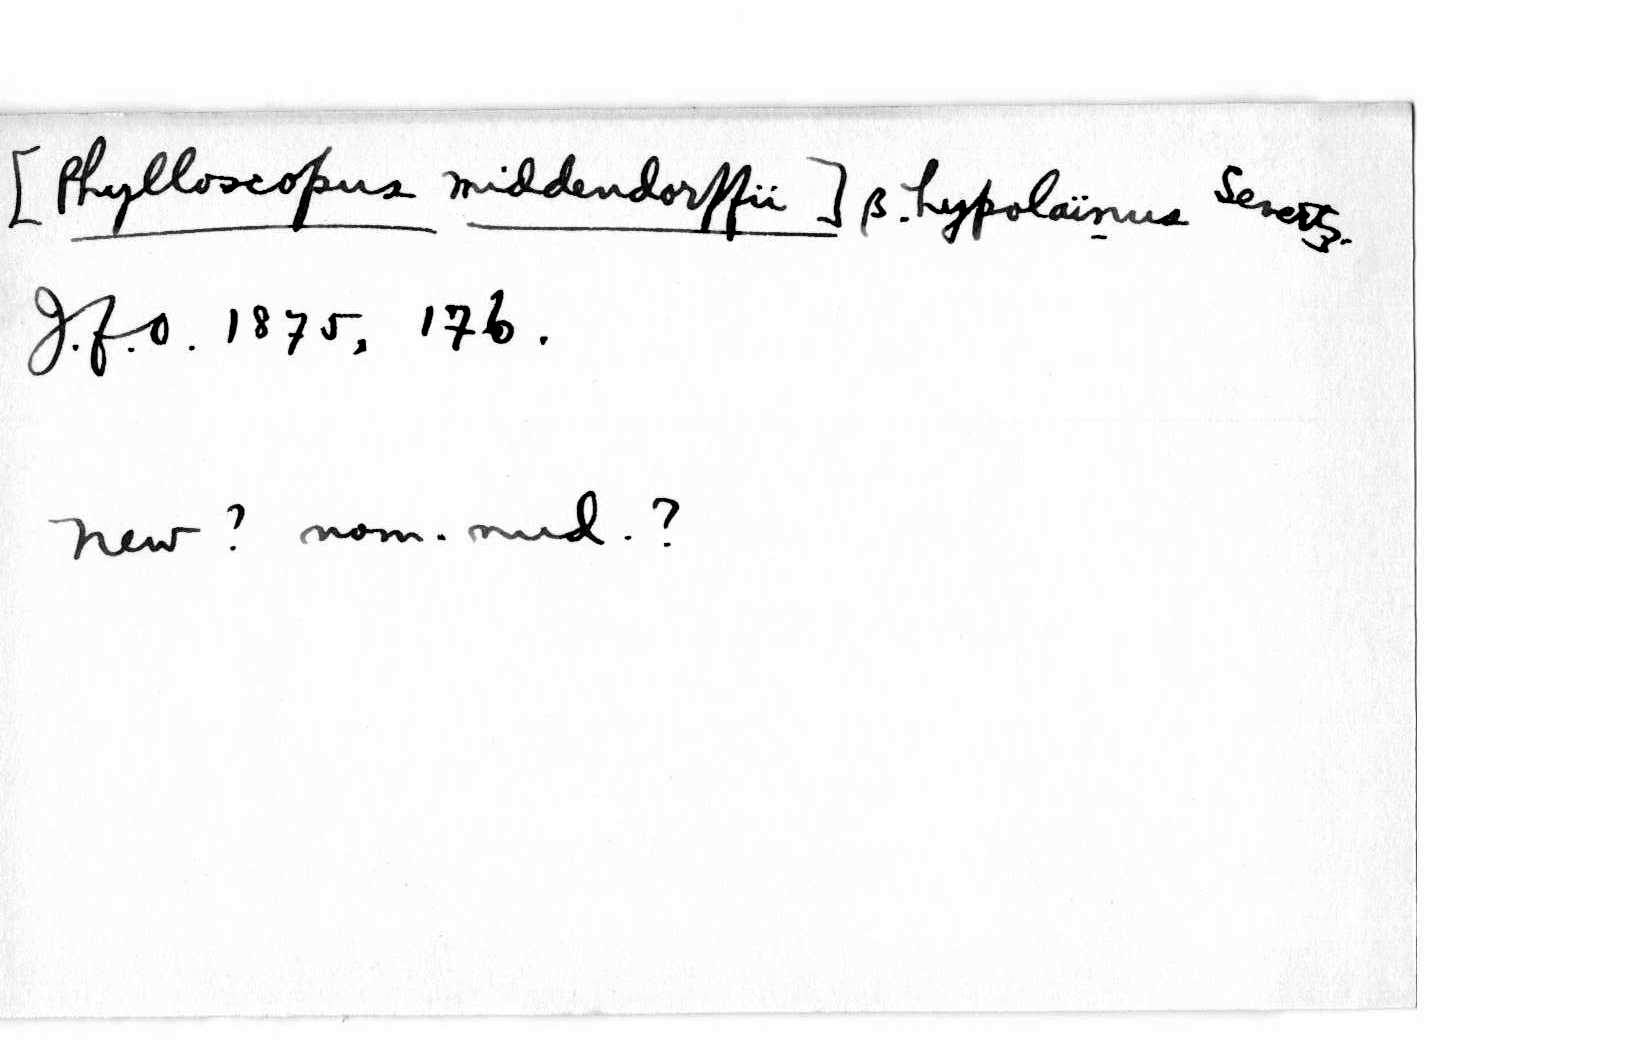 [Phylloscopus middendorffii] β. hypolaïnus Severtz.
J.f.O. 1875, 176.
New? nom. nud.?